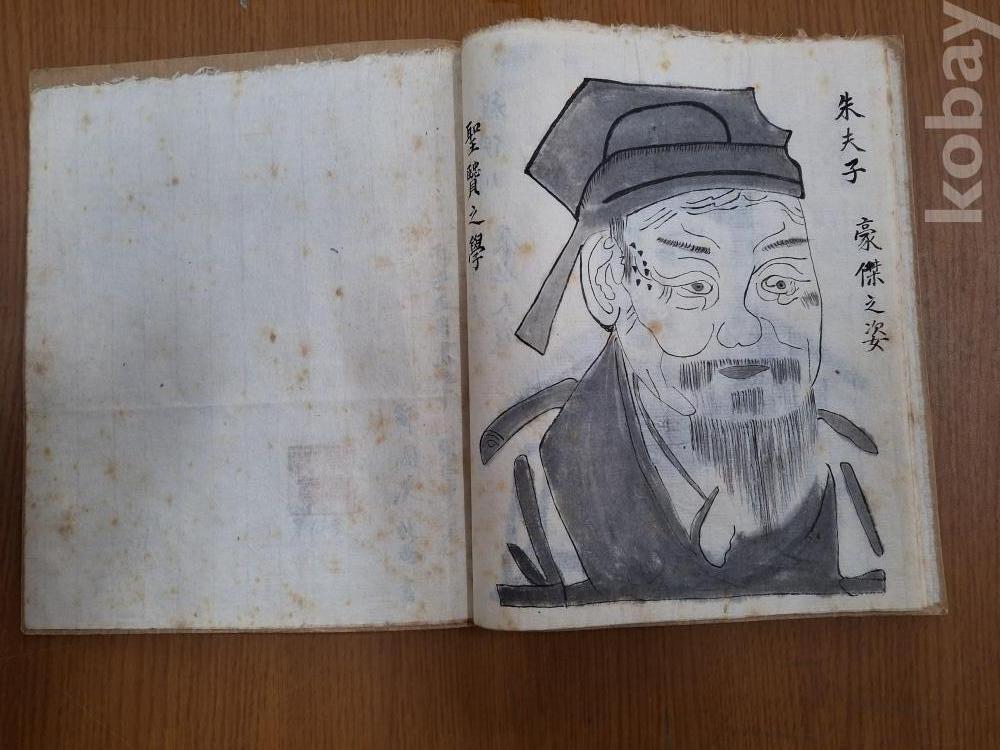 朱夫子 豪傑之姿
聖賢之學
kobay